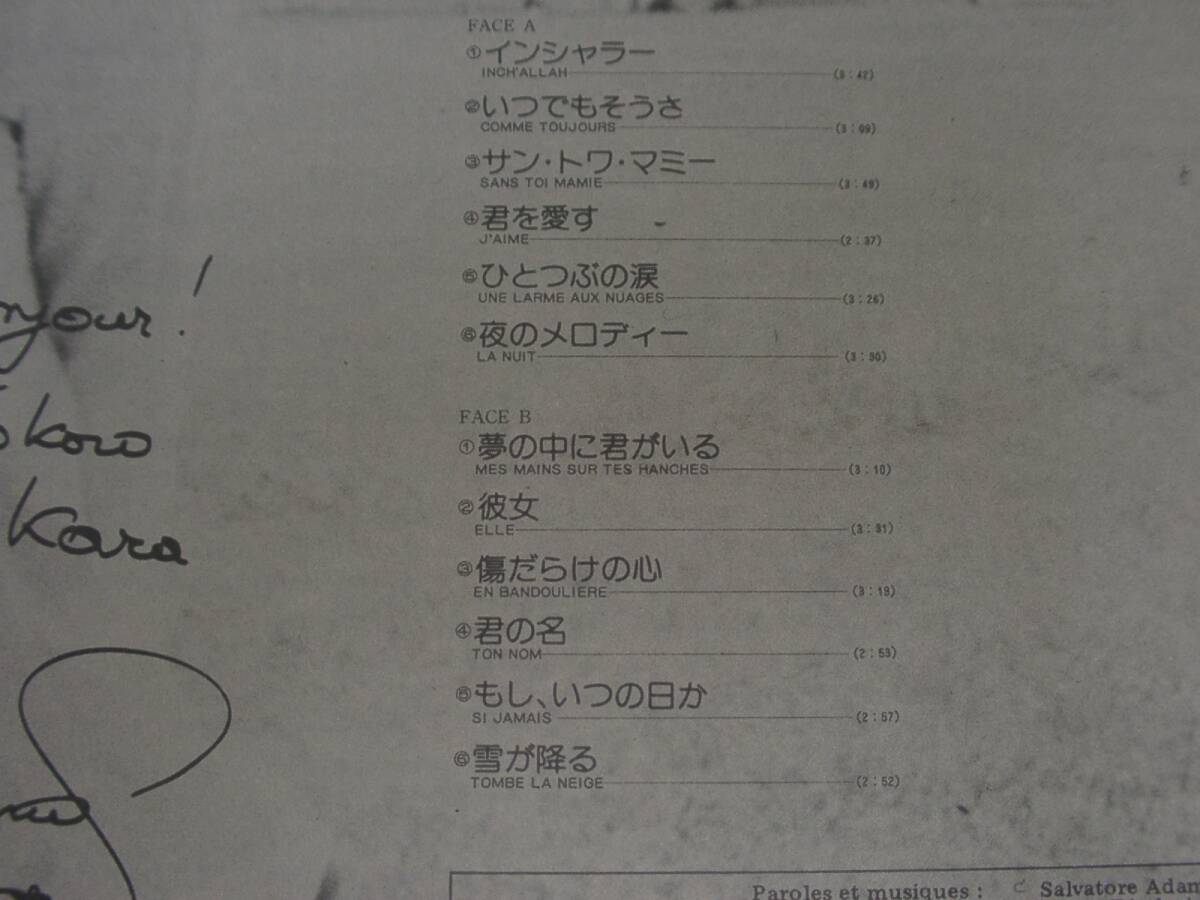 FACE A
①インシャラー
INCH'ALLAH (3:42)
②いつでもそうさ
COMME TOUJOURS (3:09)
③サン・トワ・マミー
SANS TOI MAMIE (3:49)
④君を愛す
J'AIME (2:37)
⑤ひとつぶの涙
UNE LARME AUX NUAGES (3:26)
⑥夜のメロディー
LA NUIT (3:30)
FACE B
①夢の中に君がいる
MES MAINS SUR TES HANCHES (3:10)
②彼女
ELLE (3:31)
③傷だらけの心
EN BANDOULIERE (3:19)
④君の名
TON NOM (2:53)
⑤もし、いつの日か
SI JAMAIS (2:57)
⑥雪が降る
TOMBE LA NEIGE (2:52)
njour!
okoro
Kara
Paroles et musiques : Salvatore Adam